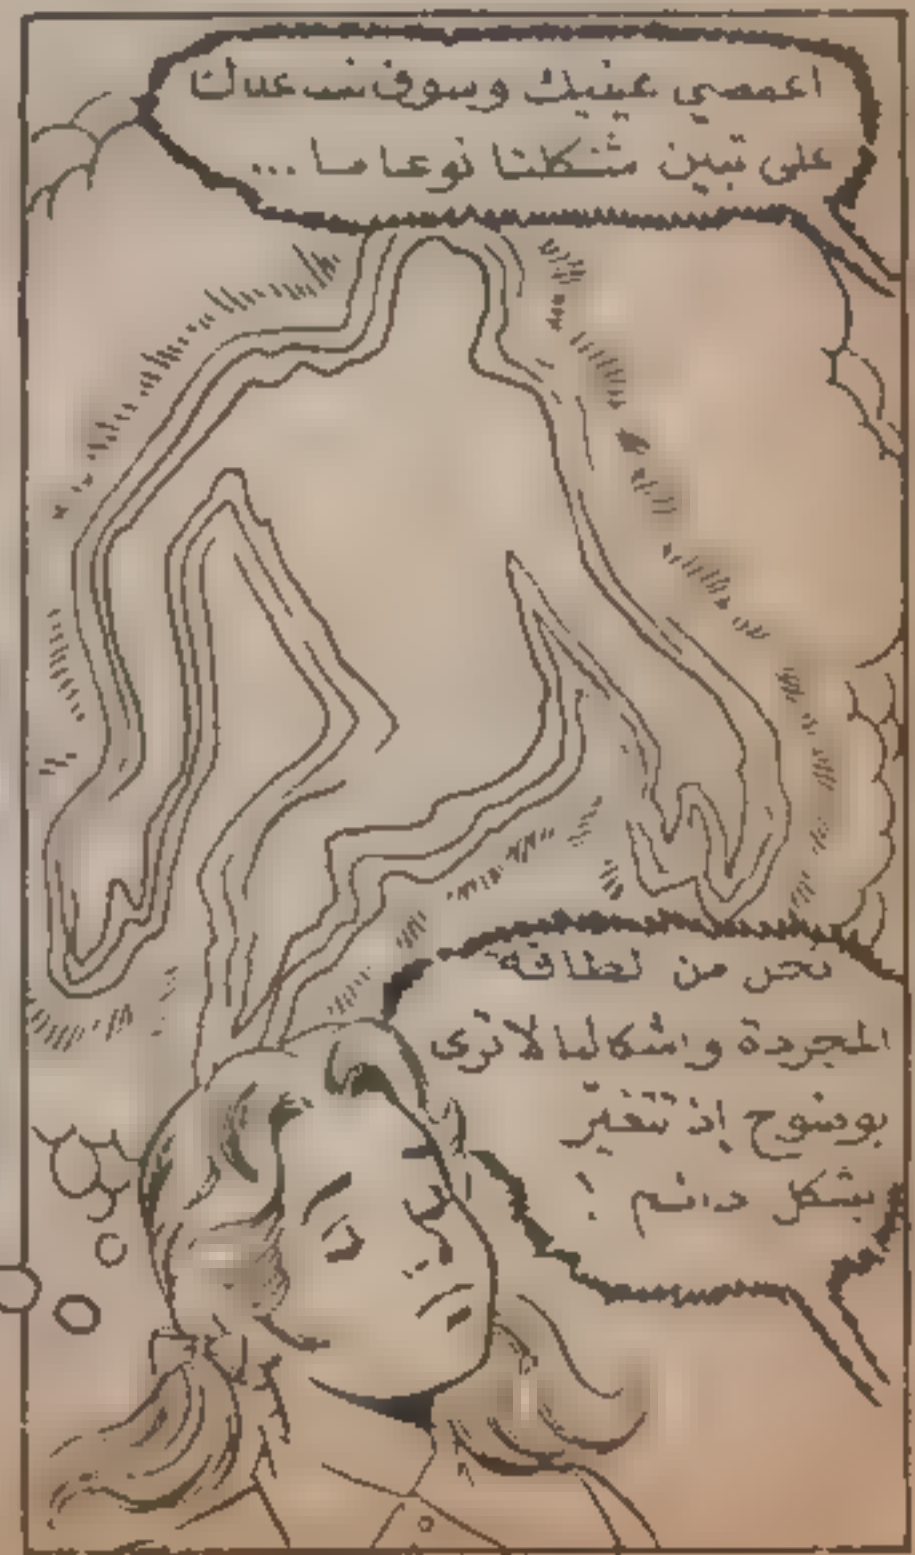 اغمضي عينيك وسوف نساعدك
على تبين شكلنا نوعا ما ...
نحن من لطاقة
المجردة واشكالنا لا ترى
بوضوح إذ تتغير
بشكل دائم !